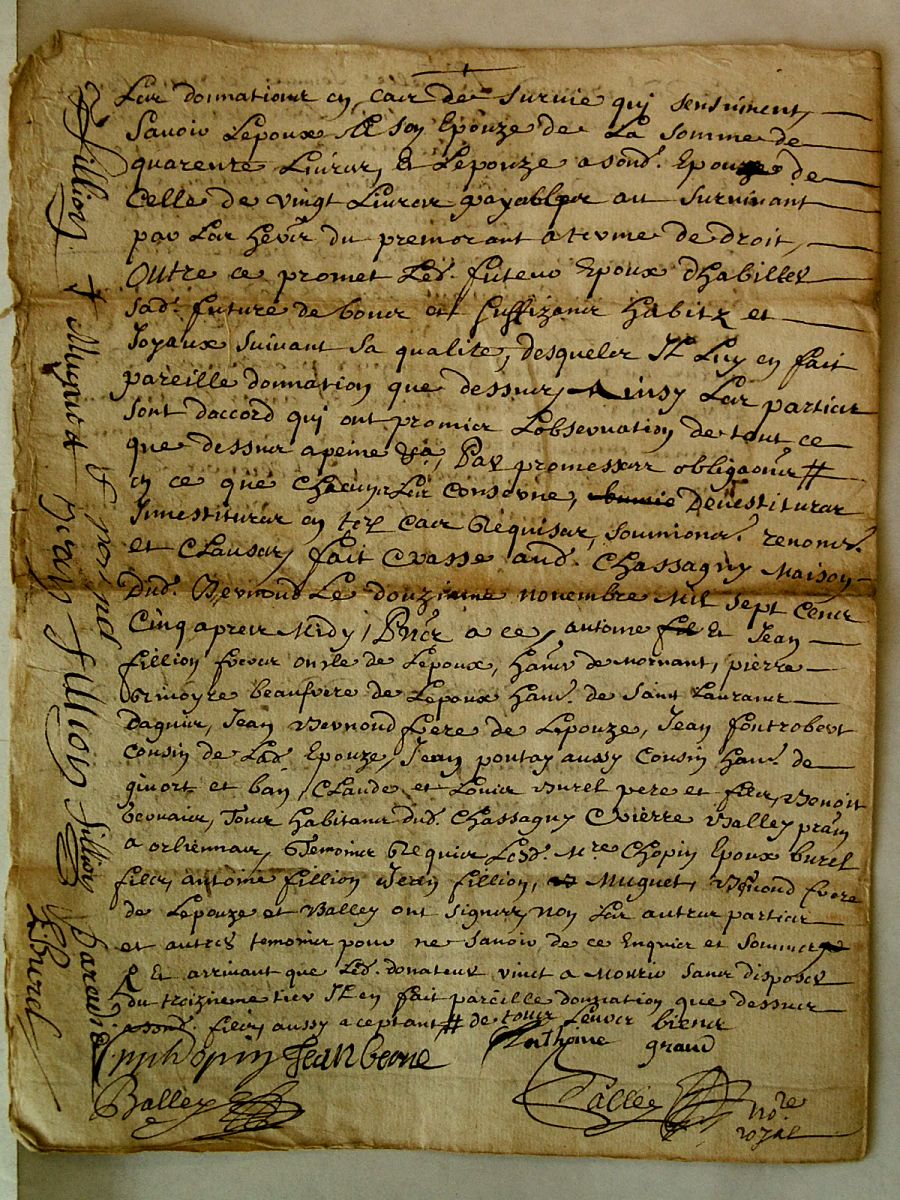 Les donnations en cas de survie qui sensuivent,
Savoir Lepoux A son Epouze de La somme de
quarente Livres, Et Lepouze a sond. Epoux de
Celle de vingt Livres payables au Survivant
par Les hers du premorant a terme de droit,
Outre ce promet Led. futeur Epoux dhabiller
sad. future de bons et suffizans habitz et
Joyaux suivant sa qualite, desqueles Il Luy en fait
pareille donnation que dessus, Ainsy Les parties
sont daccord qui ont promies Lobservation de tout ce
que dessus a peine &a, Par promesses obligaons #
en ce que chacuns Les conserne, Devestitures
Investitures en telz cas Requises, soumions renons
et Clauses, fait & passe aud. Chassagny Maison
Dud. Bernoud Le douzieme novembre Mil sept Cens
Cinq apres Midy, Pns a ce, antoine & Jean
fillion freres de Lepoux, hans de Mornant, pierre
beaufrere de Lepoux han. de Saint Laurans
Dagnin, Jean Bernoud frere de Lepouze, Jean fontrobert
cousin de Lad. Epouze, Jean pontay aussy Cousin han. de
givort et ban, Claude et Louis Burel pere et fils, Benoit
Tous habitans dud. Chassagny & pierre Balley pratn
a orliennas, Temoins Requis Lesd. Mre Chopin Epoux burel
fils, antoine fillion Jean fillion, Muguet, Bernoud frere
de Lepouze et Balley ont signes, non Les autres parties
et autres temoins pour ne savoir de ce Enquis et Sommes
& Et arrivant que Led. donateur vint a Mourir sans disposer
du troizieme tiers Il en fait pareille donnation que dessus
a sond. fils, aussy aceptant # de tous Leurs biens
Chopin Jean
Anthoine
Balley
Nore
royal
fillion Muguet Jean fillion fillion
Burel